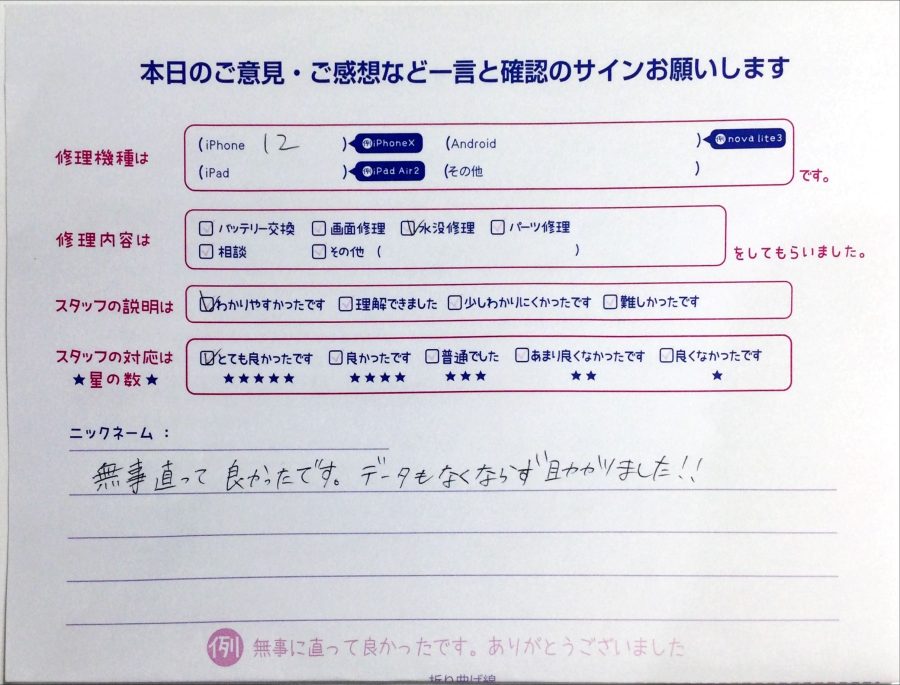 本日のご意見・ご感想など一言と確認のサインお願いします
修理機種は (iPhone 12 ) 例iPhoneX (Android ) 例nova lite3
(iPad ) 例iPad Air2 (その他 ) です。
修理内容は □バッテリー交換 □画面修理 ☑水没修理 □パーツ修理
□相談 □その他 ( ) をしてもらいました。
スタッフの説明は ☑わかりやすかったです □理解できました □少しわかりにくかったです □難しかったです
スタッフの対応は ☑とても良かったです □良かったです □普通でした □あまり良くなかったです □良くなかったです
★星の数★ ★★★★★ ★★★★ ★★★ ★★ ★
ニックネーム：
無事直って良かったです。データもなくならず助かりました!!
例 無事に直って良かったです。ありがとうございました
折り曲げ線